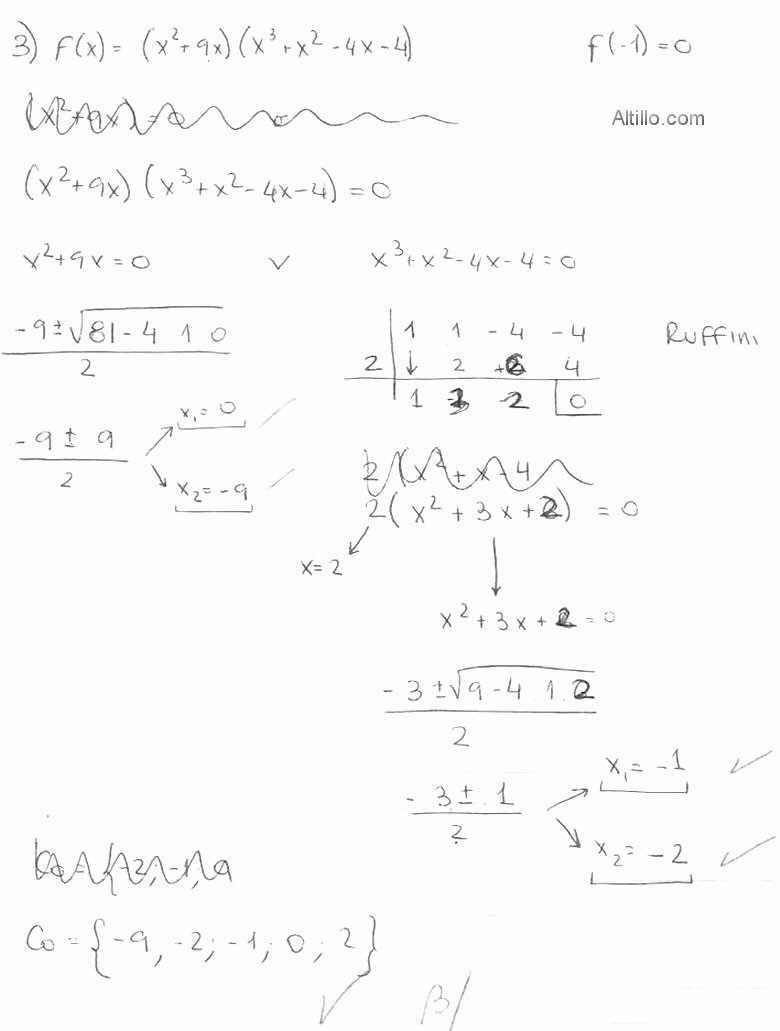 3) f(x) = (x²+9x)(x³+x²-4x-4) f(-1)=0
(x²+9x) = 0
Altillo.com
(x²+9x)(x³+x²-4x-4)=0
x²+9x=0 v x³+x²-4x-4=0
-9±√81-4 1 0
2
-9±9
2
x₁=0
x₂=-9
1 1 -4 -4 Ruffini
2 2 +6 4
1 3 2 0
2(x²+x-4
2(x²+3x+2) =0
x=2
x²+3x+2=0
-3±√9-4 1.2
2
-3±1
2
x₁=-1
x₂=-2
C₀={-9,-2;-1;0;2}
B/